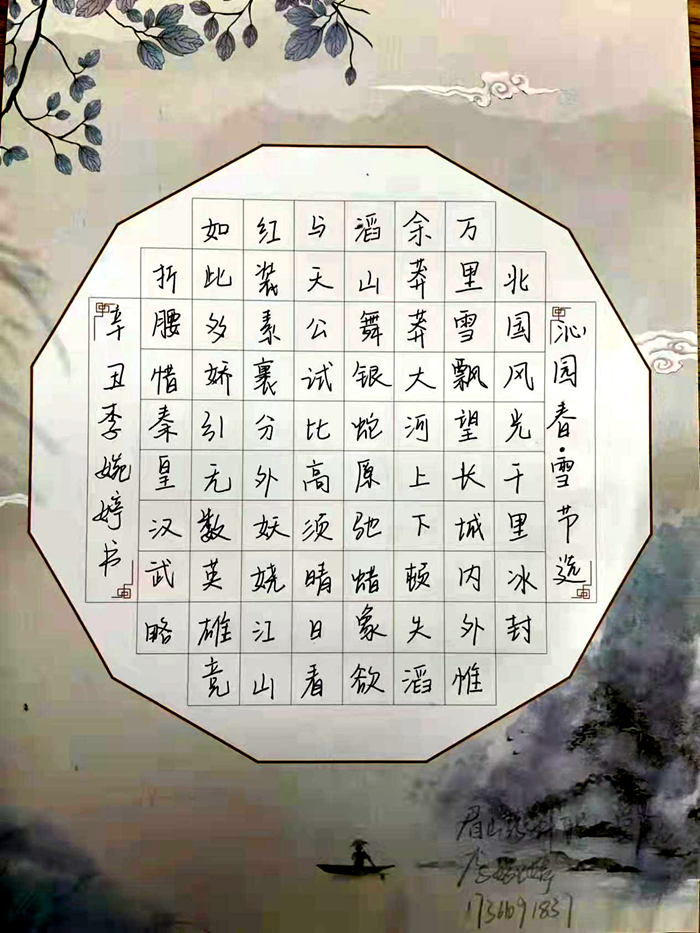 沁园春·雪 节选
北国风光千里冰封
万里雪飘望长城内外惟
余莽莽大河上下顿失滔
滔山舞银蛇原驰蜡象欲
与天公试比高须晴日看
红装素裹分外妖娆江山
如此多娇引无数英雄竞
折腰惜秦皇汉武略
辛丑李婉婷书
眉山
李婉婷